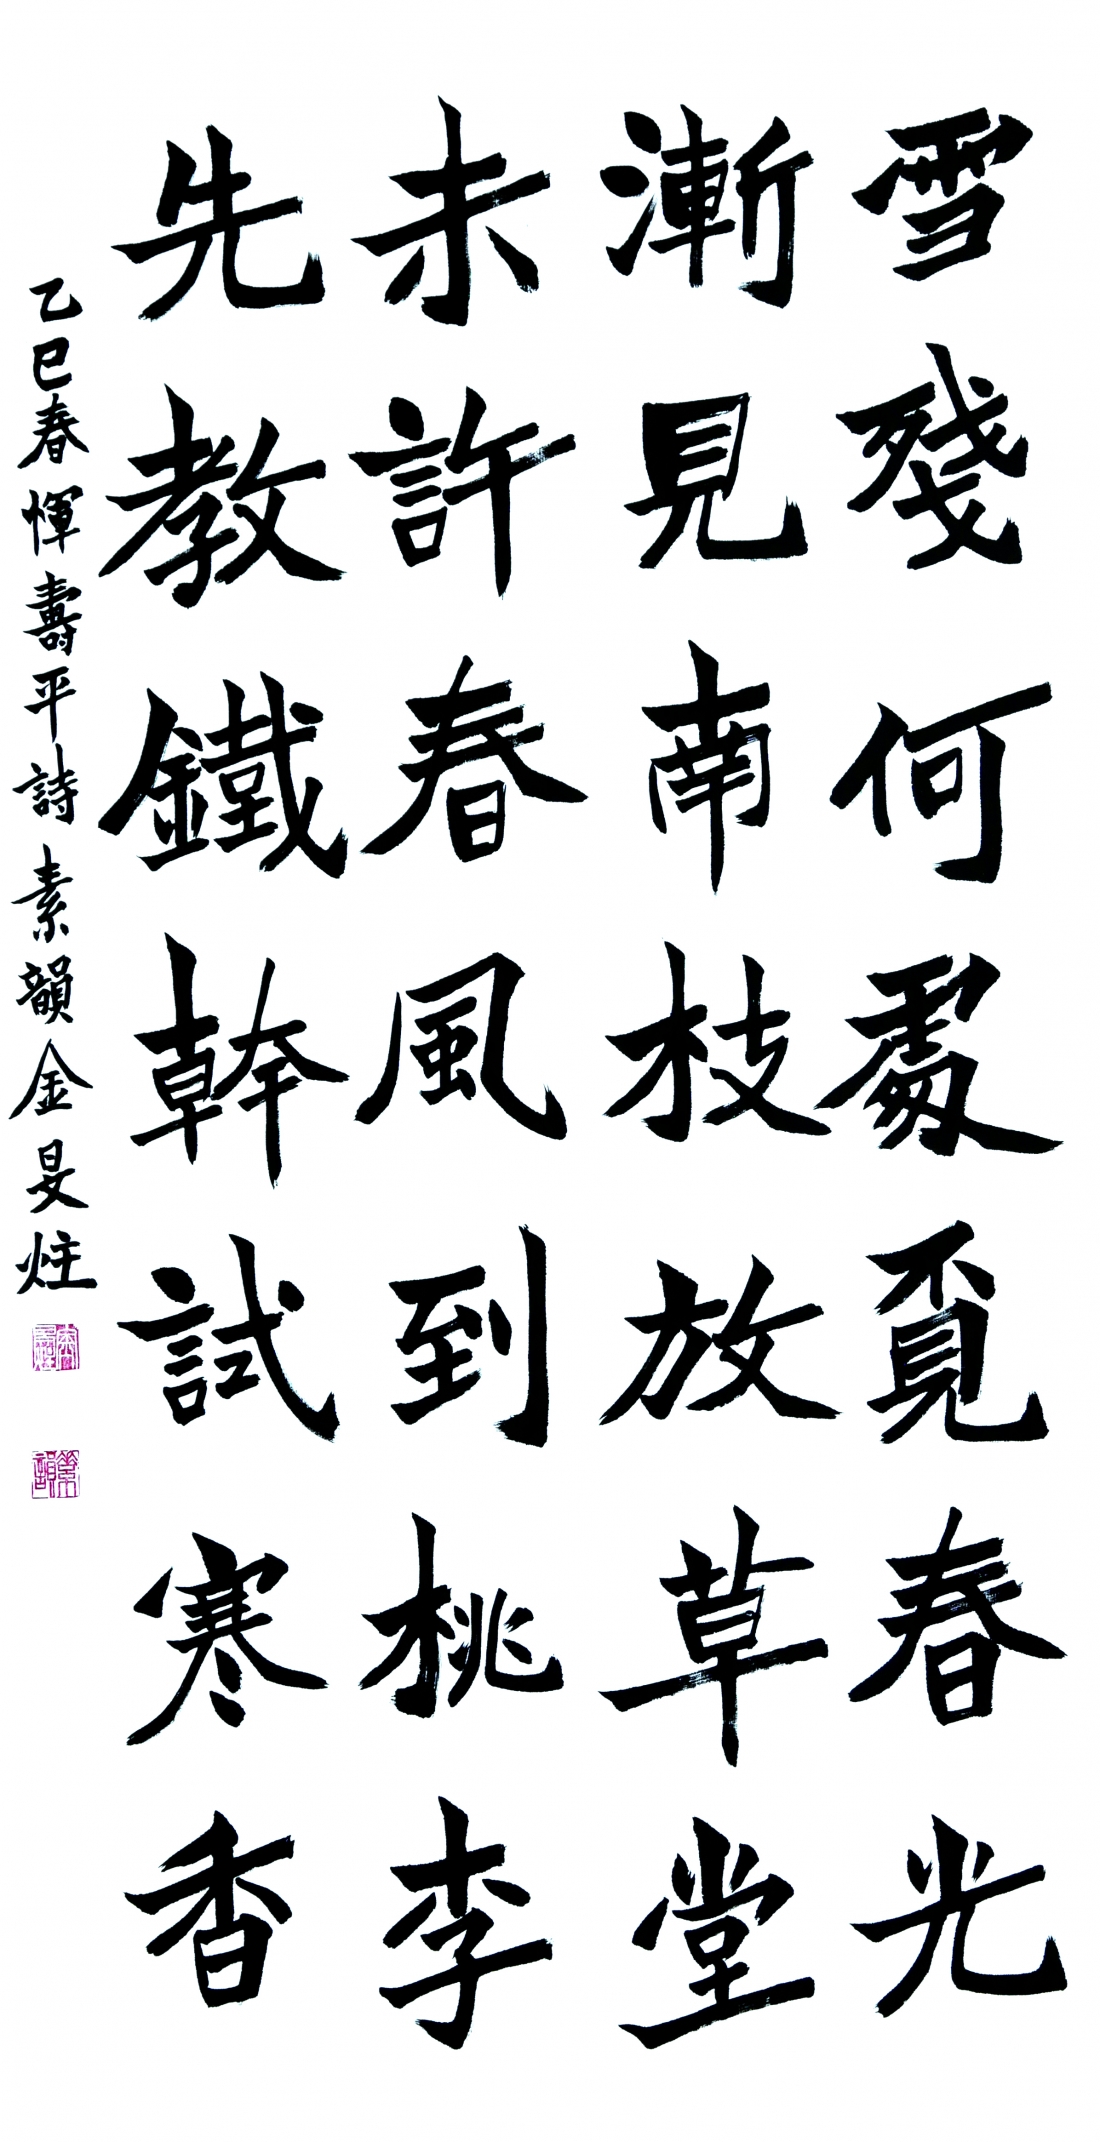 雪殘何處覓春光
漸見南枝放草堂
未許春風到桃李
先教鐵幹試寒香
乙巳春惲壽平詩素韻金旻炷